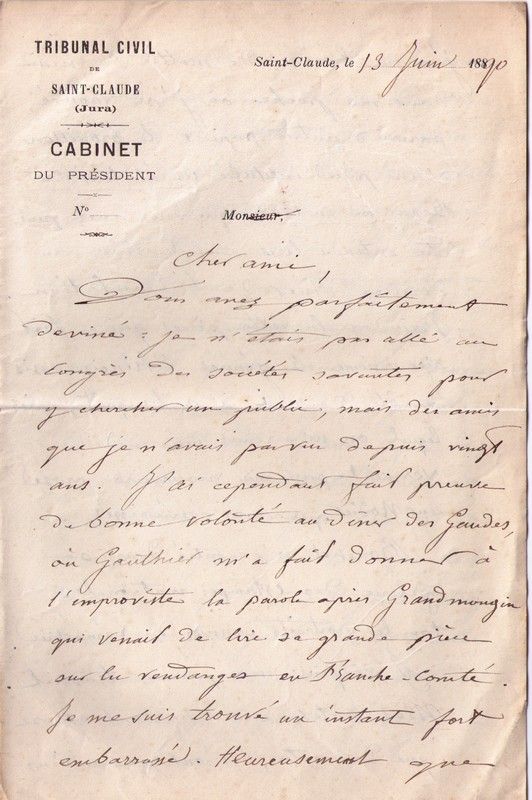 TRIBUNAL CIVIL
DE
SAINT-CLAUDE
(Jura)
CABINET
DU PRÉSIDENT
N°
Saint-Claude, le 13 Juin 1890
Monsieur,
Cher ami,
Vous avez parfaitement
deviné : je n'étais pas allé au
Congrès des sociétés savantes pour
y chercher un public, mais des amis
que je n'avais pas vu depuis vingt
ans. J'ai cependant fait preuve
de bonne volonté au dîner des Gaudes,
où Gauthier m'a fait donner à
l'improviste la parole après Grandmougin
qui venait de lire sa grande pièce
sur les vendanges en Franche-Comté.
Je me suis trouvé un instant fort
embarrassé. Heureusement que